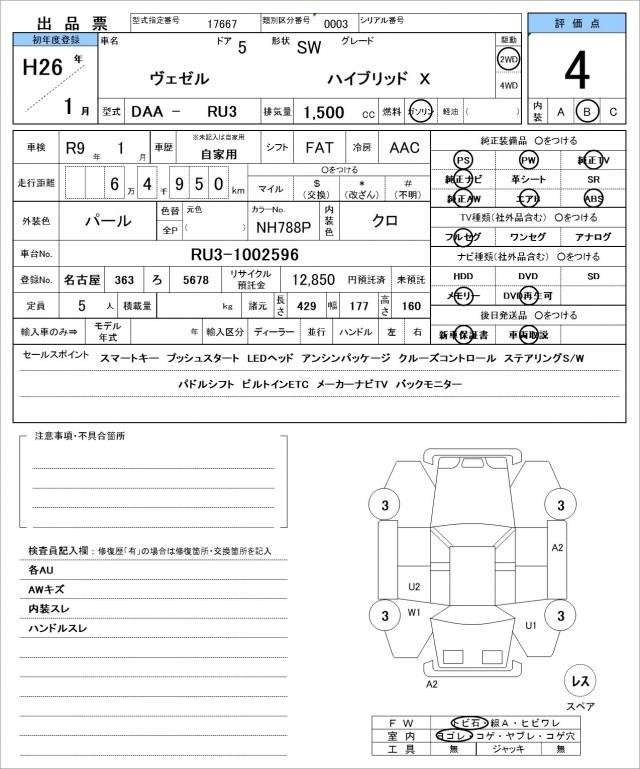 出品票 型式指定番号 17667 類別区分番号 0003 シリアル番号
評価点
初年度登録 車名 ドア 5 形状 SW グレード 駆動
H26年 ヴェゼル ハイブリッド X 2WD 4
4WD
1月 型式 DAA － RU3 排気量 1,500 cc 燃料 ガソリン 軽油 ( ) 内装 A B C
車検 R9年 1月 車歴 ※未記入は自家用 自家用 シフト FAT 冷房 AAC
走行距離 6万4千950km 〇をつける マイル $(交換) *(改ざん) #(不明)
外装色 パール 色替 全P 元色 ( ) カラーNo. NH788P 内装色 クロ
車台No. RU3-1002596
登録No. 名古屋 363 ろ 5678 リサイクル預託金 12,850 円預託済 未預託
定員 5人 積載量 kg 諸元 長さ 429 幅 177 高さ 160
輸入車のみ⇒ モデル年式 年 輸入区分 ディーラー 並行 ハンドル 左 右
純正装備品 〇をつける
PS PW 純正TV
純正ナビ 革シート SR
純正AW エアB ABS
TV種類(社外品含む) 〇をつける
フルセグ ワンセグ アナログ
ナビ種類(社外品含む) 〇をつける
HDD DVD SD
メモリー DVD再生可
後日発送品 〇をつける
新車保証書 車両取説
セールスポイント スマートキー プッシュスタート LEDヘッド アンシンパッケージ クルーズコントロール ステアリングS/W
パドルシフト ビルトインETC メーカーナビTV バックモニター
注意事項・不具合箇所
検査員記入欄：修復歴「有」の場合は修復箇所・交換箇所を記入
各AU
AWキズ
内装スレ
ハンドルスレ
3 3
A2
U2
W1
3 3
U1
A2
レス
スペア
FW トビ石・線A・ヒビワレ
室内 ヨゴレ・コゲ・ヤブレ・コゲ穴
工具 無 ジャッキ 無